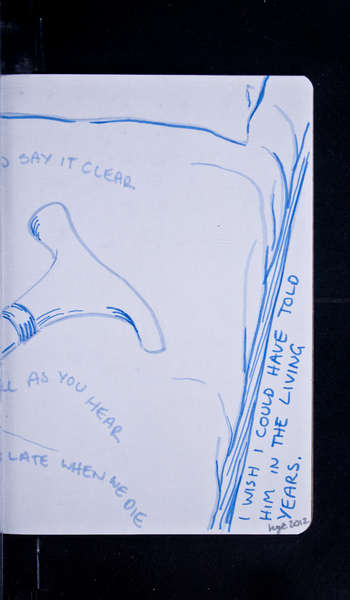 SAY IT CLEAR
AS YOU HEAR
LATE WHEN WE DIE
I WISH I COULD HAVE TOLD
HIM IN THE LIVING
YEARS.
2012